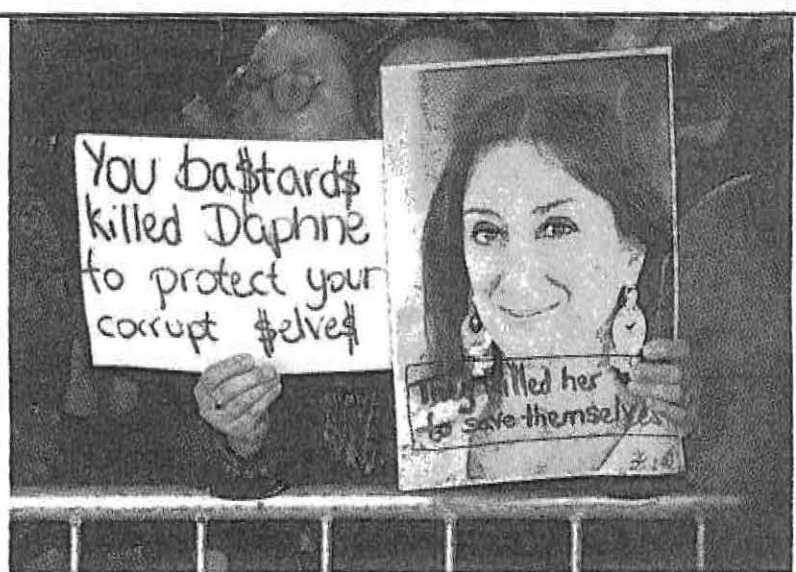 You ba$tard$
killed Daphne
to protect your
corrupt $elve$
They killed her
to save themselves